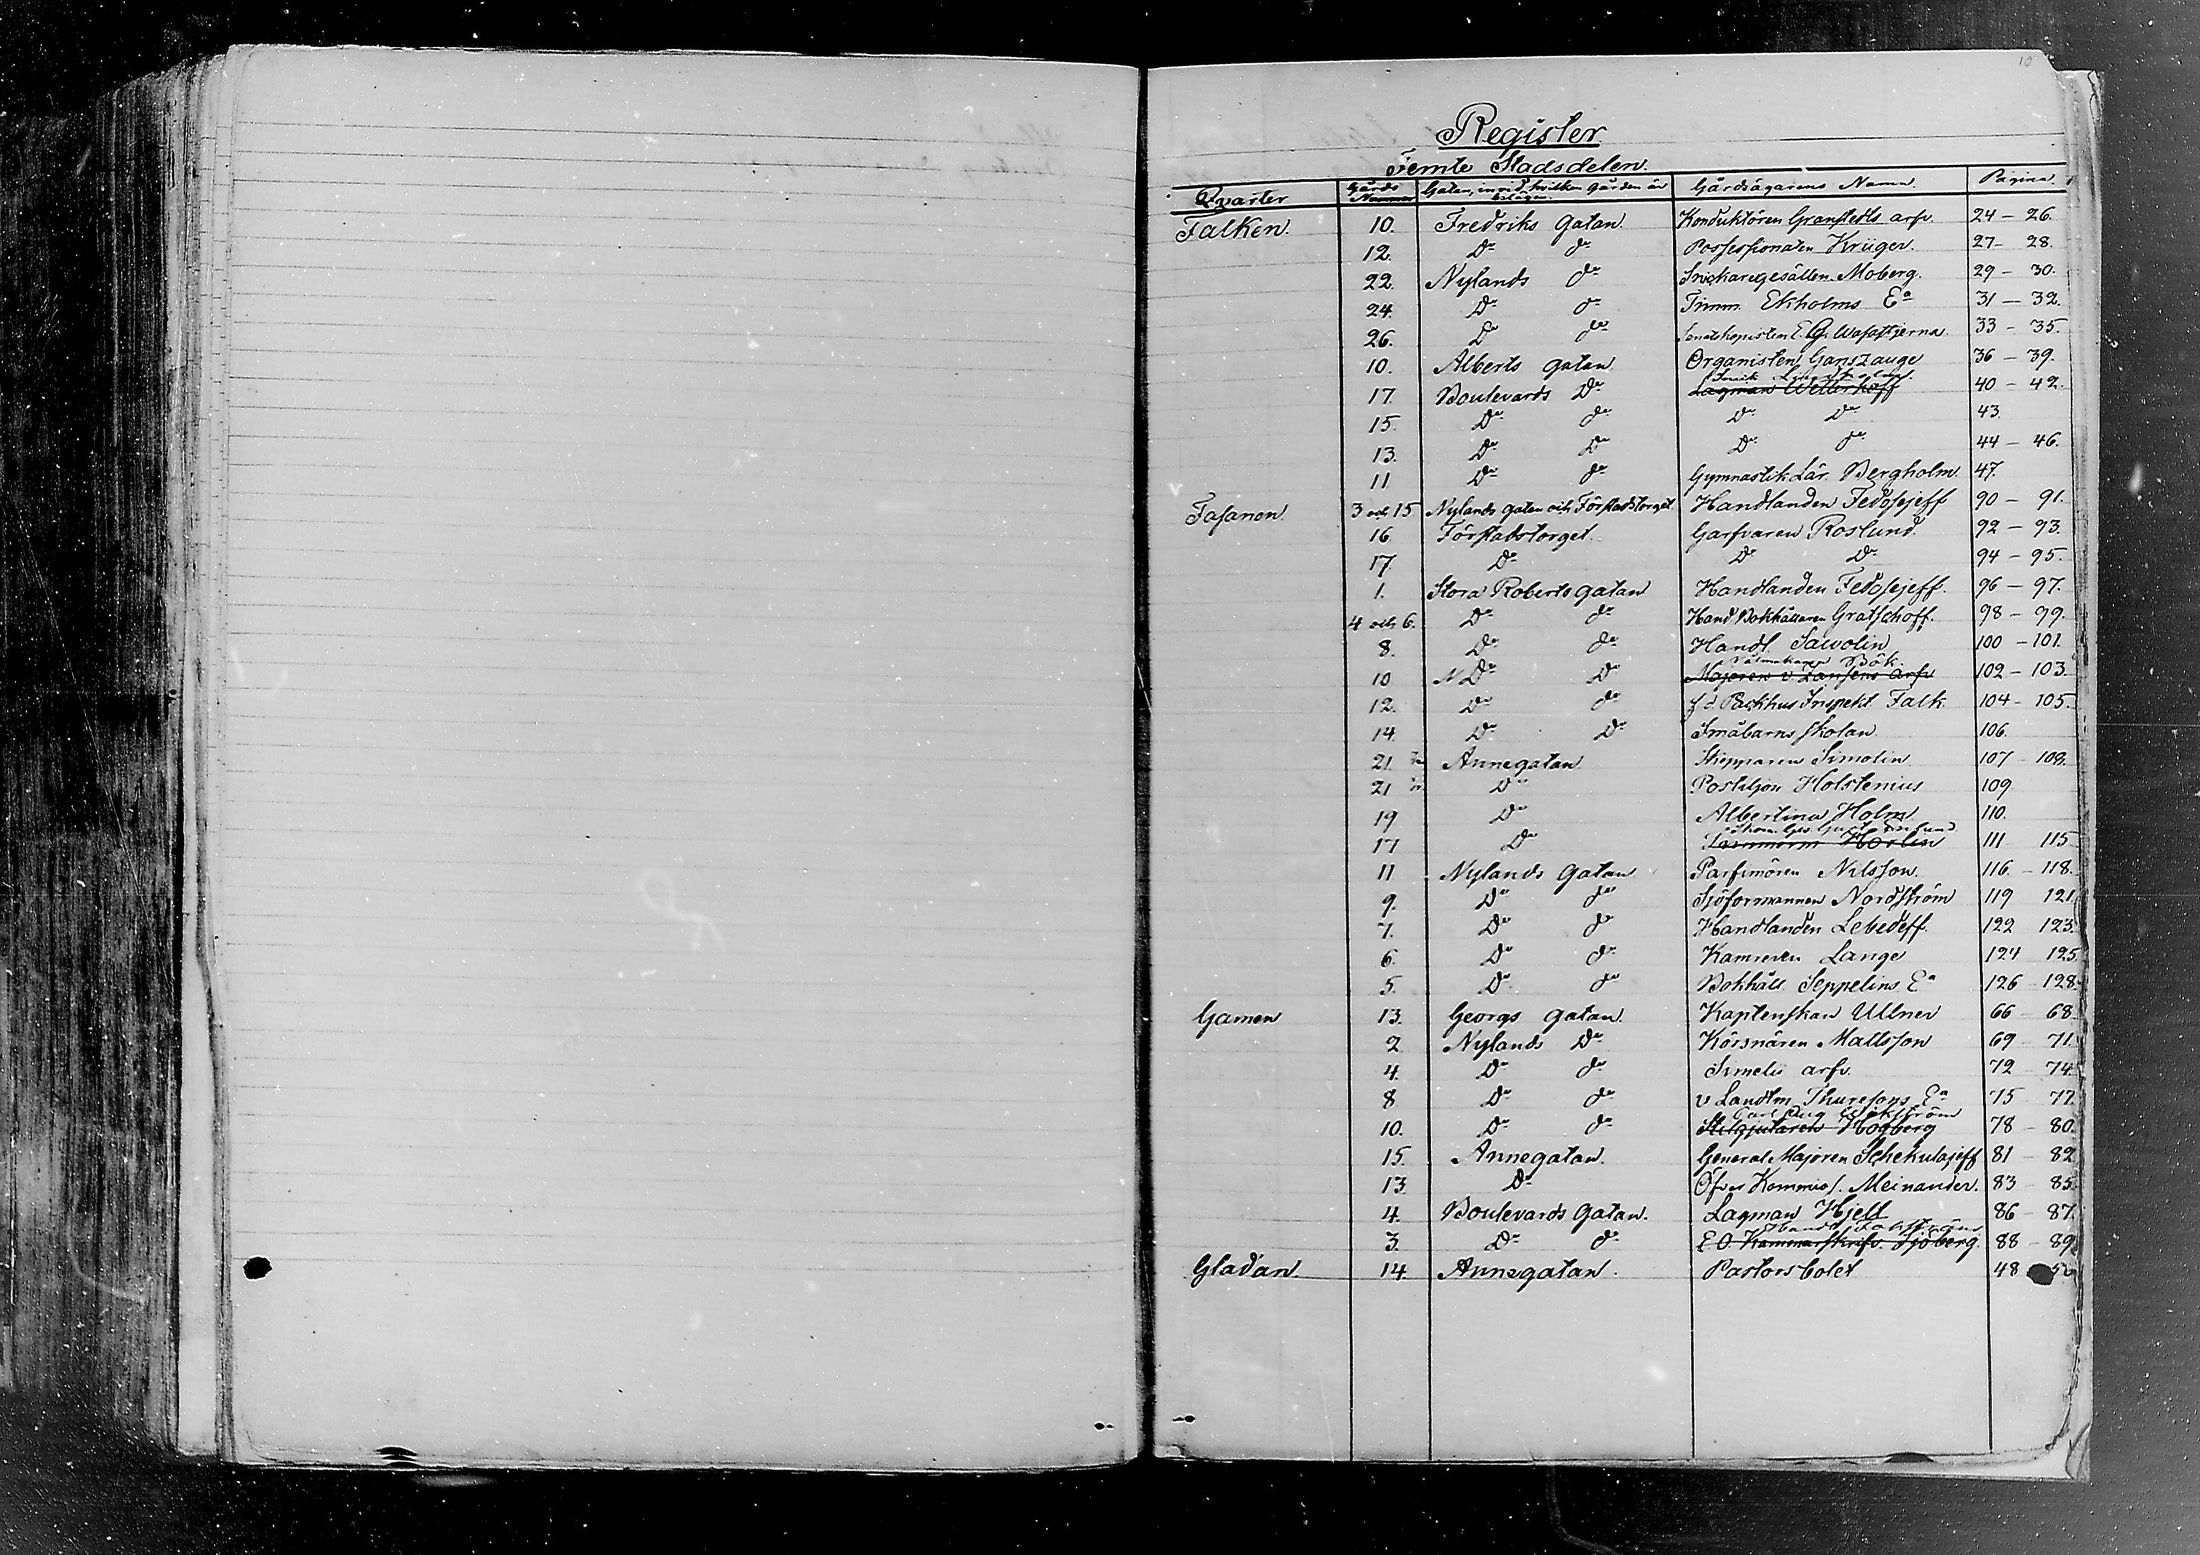 10
Register
Femte Stadsdelen.
Qvarter Gårds Nummer Gatan, invid hvilken gården är belägen. Gårdsägarens Namn. Pagina.
Falken. 10. Fredriks gatan. Konduktören Granstedts arfv. 24 - 26.
12. Do do Possessionaten Krüger. 27 - 28.
22. Nylands do Snickaregesällen Moberg. 29 - 30.
24. Do do Timm. Ekholms Ea 31 - 32.
26. Do do Senatskopisten E. G. Wasastjerna 33 - 35.
10. Alberts gatan Organisten Ganszauge 36 - 39.
17. Boulevards Do Lagman Wetterhoff 40 - 42.
15. Do do Do Do 43.
13. Do Do Do do 44 - 46.
11 Do do Gymnastik Lär. Bergholm. 47.
Fasanen. 3 och 15 Nylands gatan och Förstadstorget Handlanden Fedosejeff 90 - 91.
16. Förstadstorget. Garfvaren Roslund. 92 - 93.
17. Do Do Do 94 - 95.
1. Stora Roberts gatan Handlanden Fedosejeff. 96 - 97.
4 och 6. Do do Hand Bokhållaren Gratschoff. 98 - 99.
8. Do do Handl. Sawolin 100 - 101.
Bök.
10 N Do Do Majoren v Zansens arfv 102 - 103.
12. Do do f d Packhus Inspekt. Falk 104 - 105.
14. Do Do Småbarns skolan 106.
21. Annegatan Skepparen Simolin 107 - 108.
21 Do Postiljon Holstenius 109
19 Do Albertina Holm 110.
17 Do Horlin 111 115
11 Nylands gatan Parfimören Nilsson. 116. - 118.
9. Do do Sjöformannen Nordström 119 121.
7. Do do Handlanden Lebedeff. 122 123.
6. Do do Kamreren Lange 124 125
5. Do do Bokhåll Seppelins Ea 126 - 128.
Gamen 13. Georgs gatan. Kaptenskan Ullner 66 - 68.
2 Nylands Do Körsnären Mattsson 69 - 71.
4. Do do Simelii arfv. 72 - 74.
8 Do do v Landtm Thuresons Ea 75 - 77
Carl Aug
10. Do do Stilgjutaren Högberg 78 - 80.
15. Annegatan. General Majoren Schekulajeff 81 - 82
13. Do Öfver Kommiss. Meinander. 83 - 85.
4. Boulevards gatan. Lagman Hjelt 86 - 87.
Handl.
3. Do do E. O. Kammarskrifv. Sjöberg. 88 - 89
Gladan. 14. Annegatan. Pastorsbolet 48